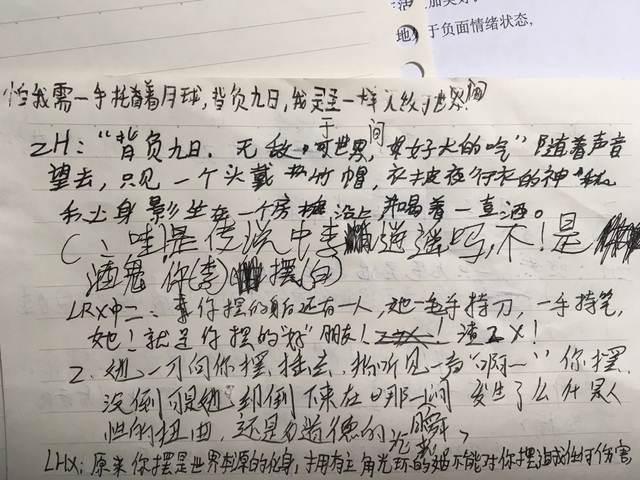 活 加美好
地 于负面情绪状态,
怕我需一手托着月球,背负九日,我灵至一样无敌于世界间
ZH:“背负九日.无敌于世界间,真好大的吃”随着声音
望去,只见一个头戴竹帽,衣披夜行衣的神秘
人士身影坐在一个房檐沿上并喝着一直酒。
C:哇是传说中李逍遥吗,不!是
酒鬼你(李)摆(白)
LRX中二:李你摆的身后还有一人,她一手持刀,一手持笔,
她!就是你摆的“好”朋友!渣ZX!
Z.她一刀向你摆捶去,你听见一声“啊一”你摆
没倒可是她却倒下来在日那一间 发生了么什是人
性的扭曲,还是为道德的光
瞬
LHX:原来你摆是世界本源的化身,拥有主角光环的她不能对你摆造成任何伤害